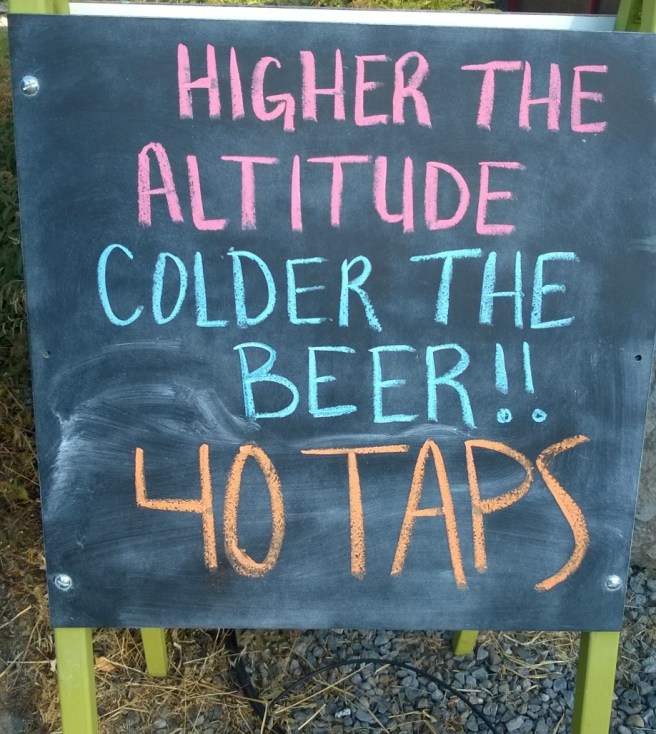 HIGHER THE
ALTITUDE
COLDER THE
BEER!!
40 TAPS